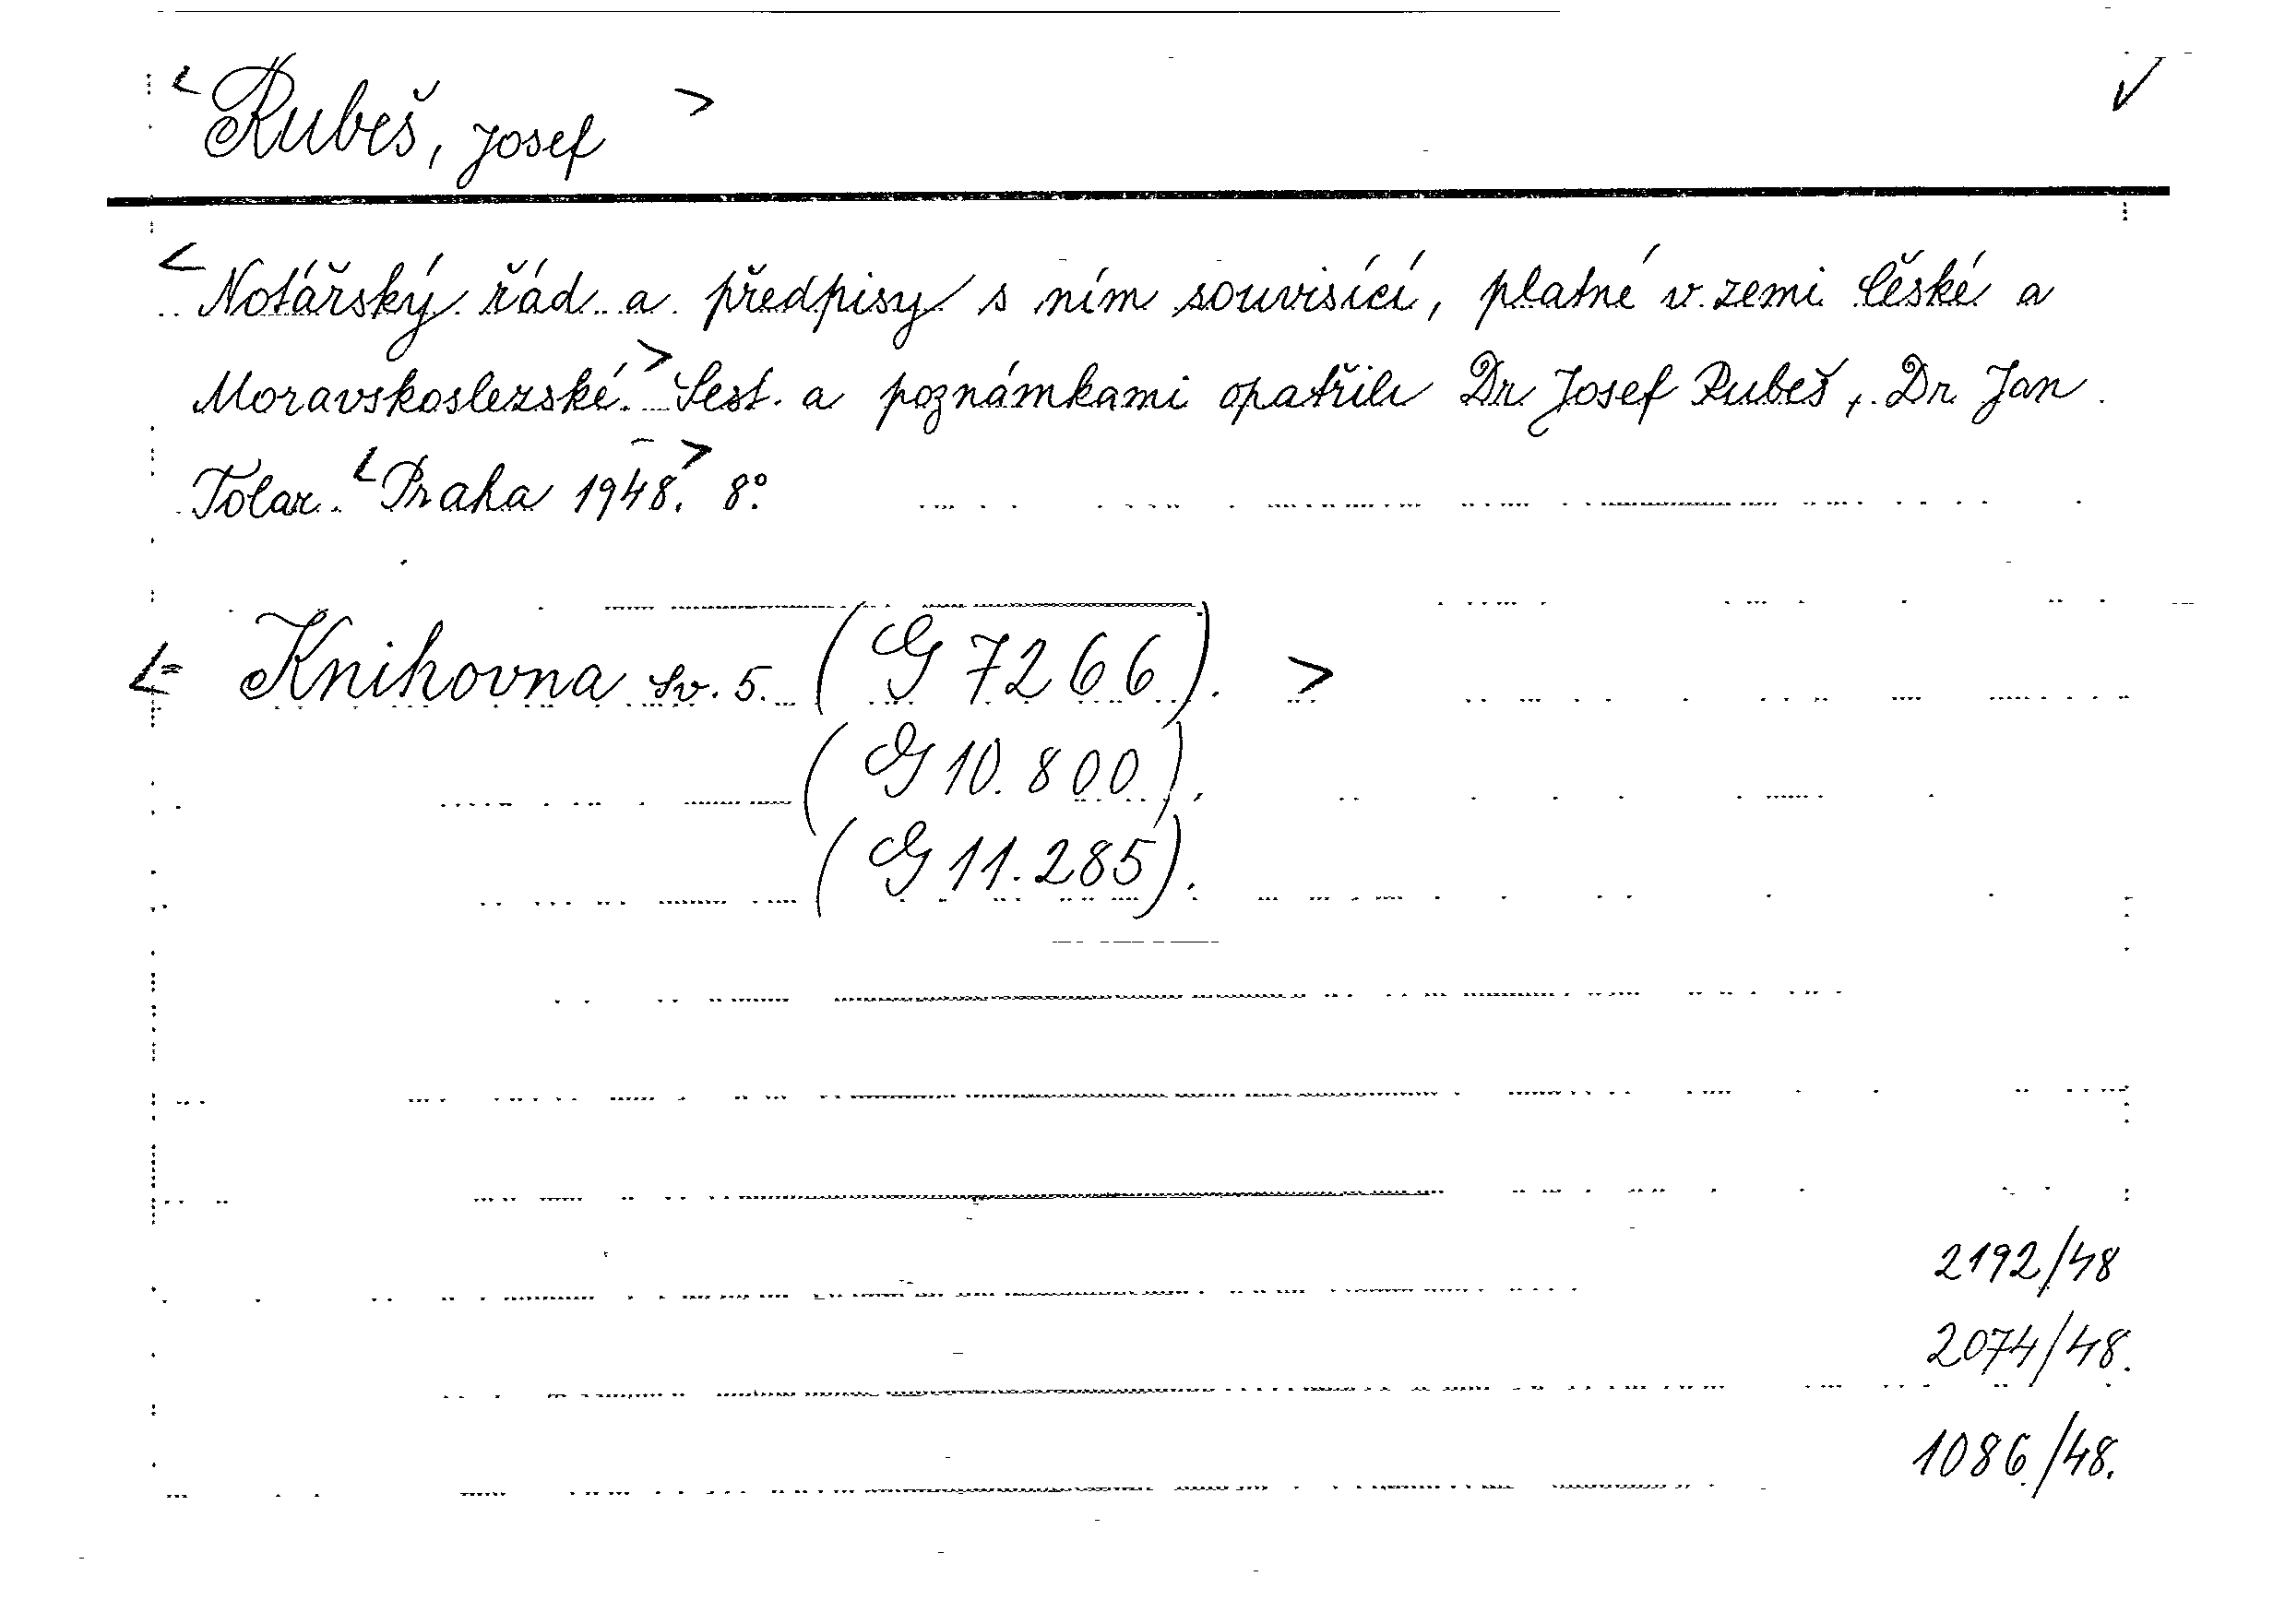 < Rubeš, Josef > ✓
< Notářský řád a předpisy s ním souvisící, platné v zemi České a
Moravskoslezské. > Sest. a poznámkami opatřili Dr. Josef Rubeš, Dr. Jan
Tolar. < Praha 1948. > 8°.
<= Knihovna sv. 5. (G 7266). >
(G 10.800).
(G 11.285).
2192/48
2074/48.
1086/48.